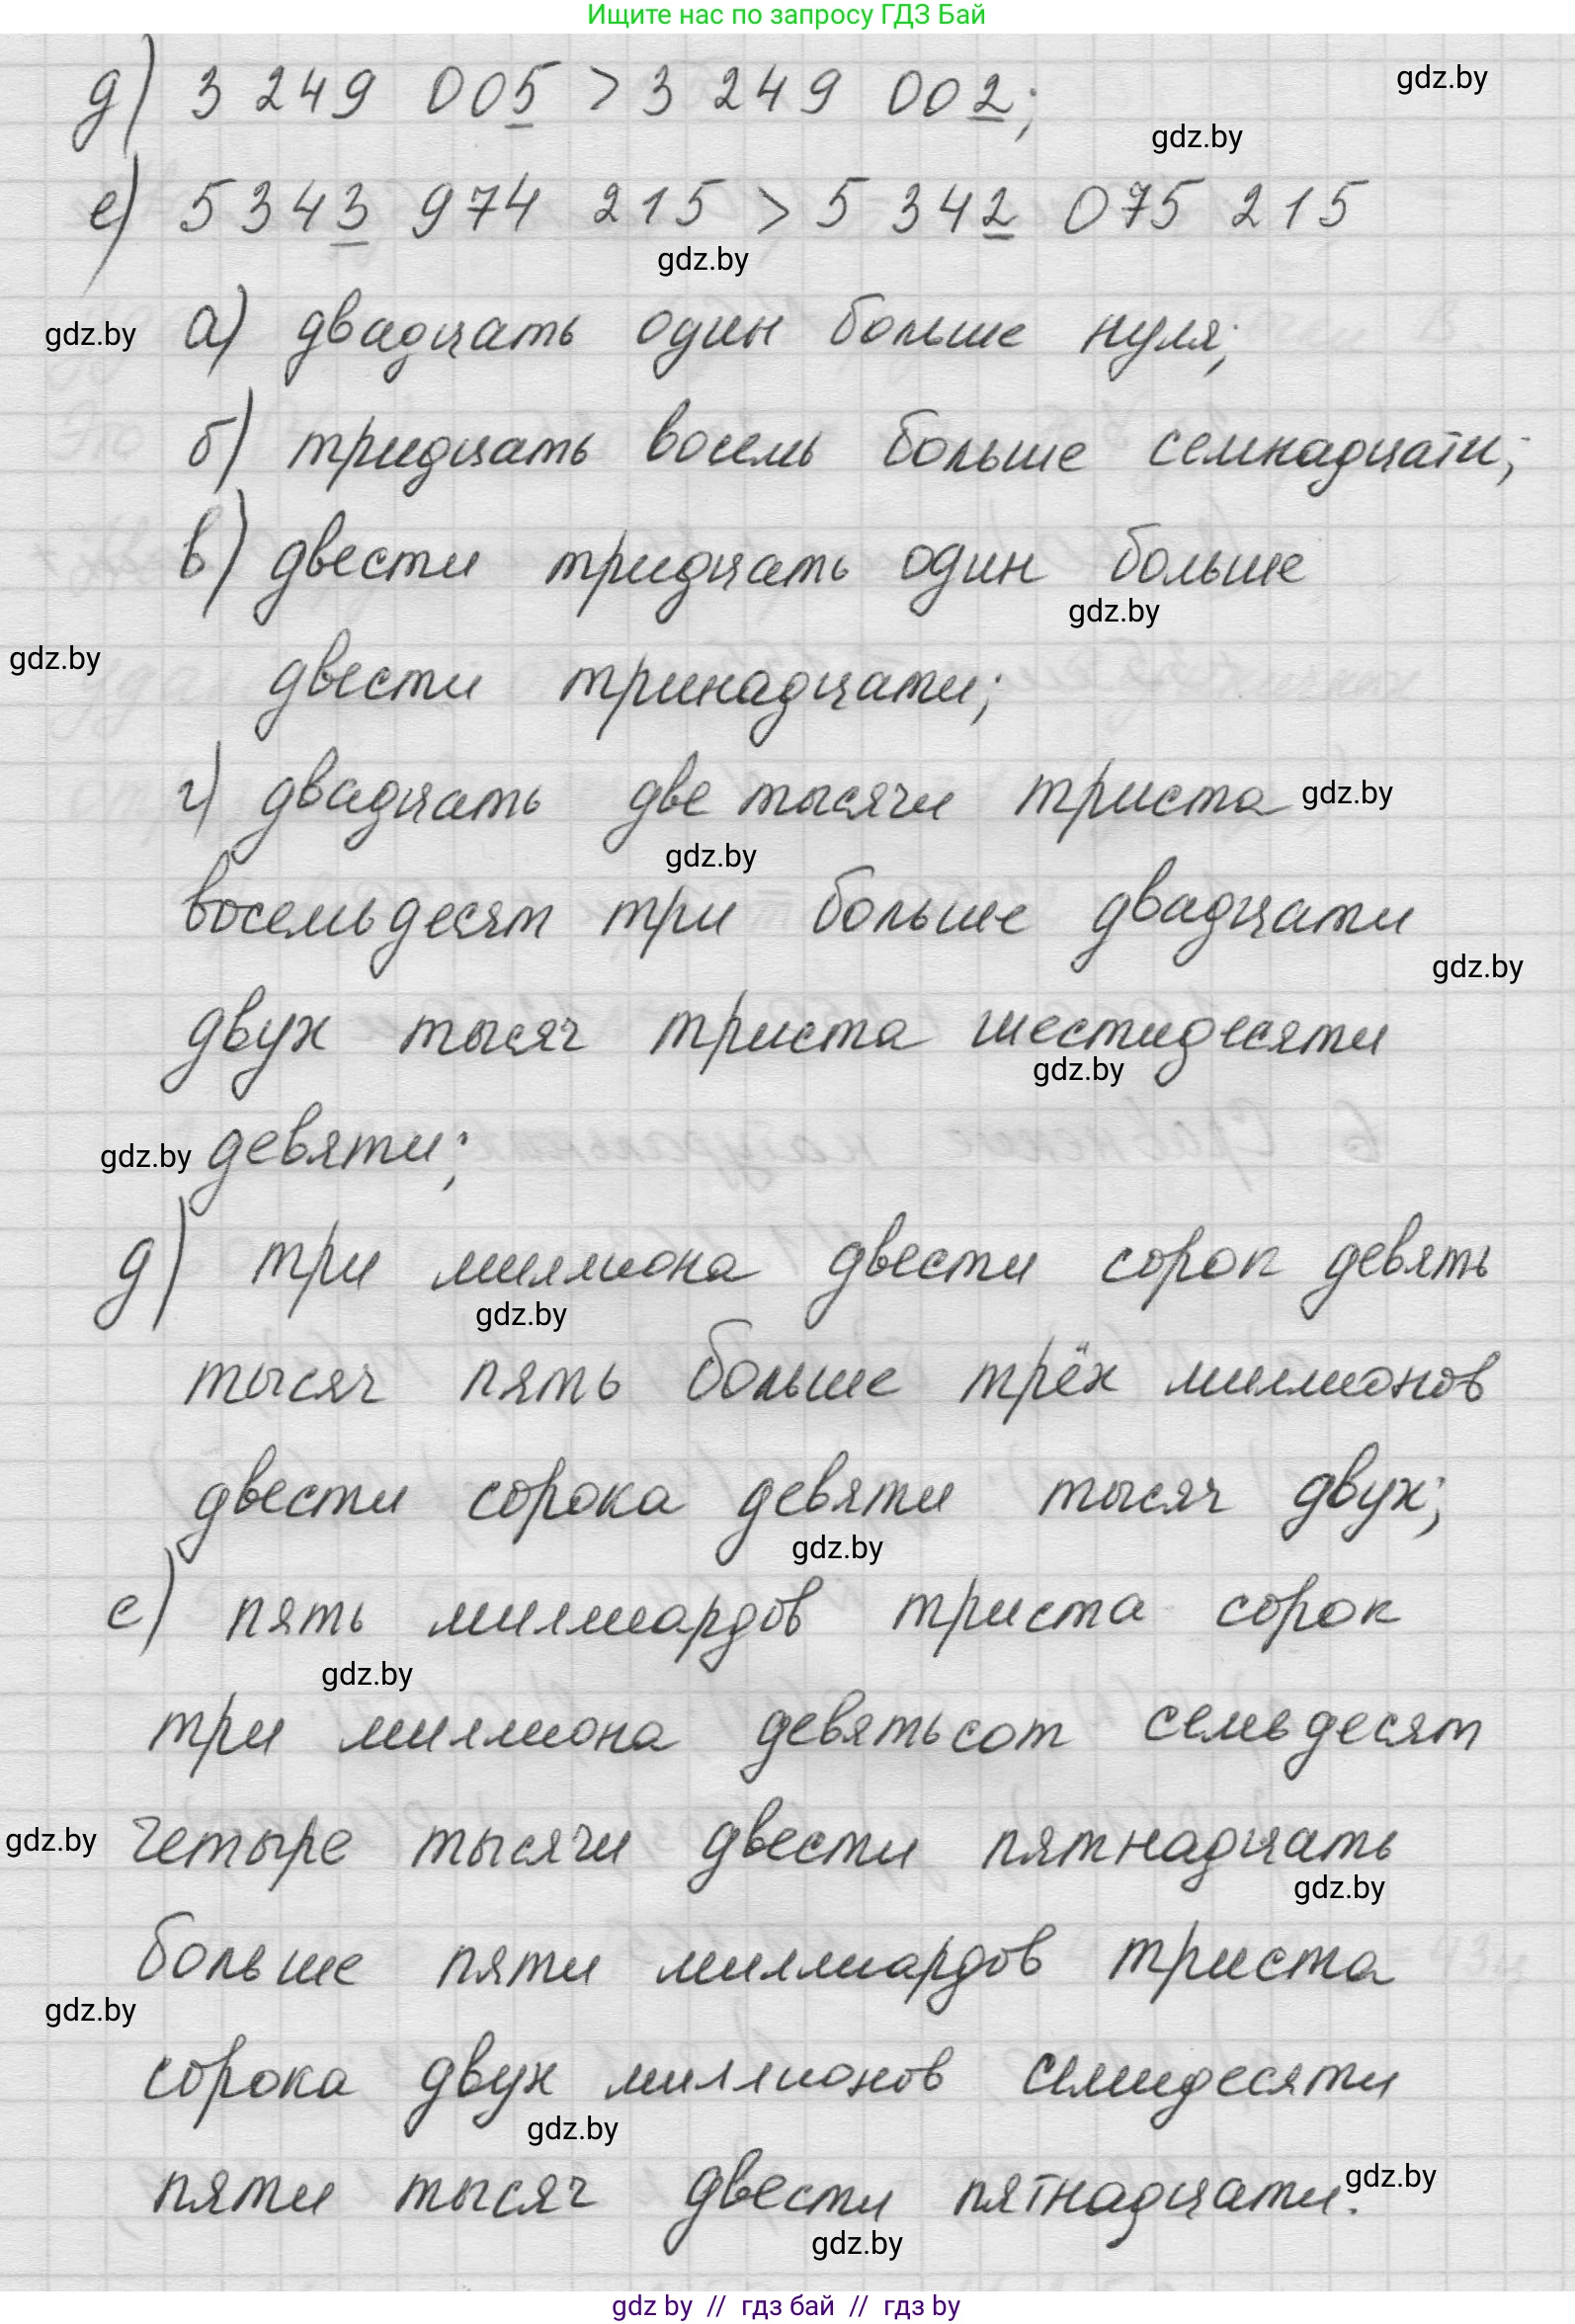 Ищите нас по запросу ГДЗ Бай
д) 3 249 005 > 3 249 002;
gdz.by
gdz.by
е) 5 343 974 215 > 5 342 075 215
gdz.by
gdz.by а) двадцать один больше нуля;
б) тридцать восемь больше семнадцати;
в) двести тридцать один больше
gdz.by
gdz.by
двести тринадцати;
г) двадцать две тысячи триста gdz.by
gdz.by
восемьдесят три больше двадцати
gdz.by
двух тысяч триста шестидесяти
gdz.by
gdz.by девяти;
д) три миллиона двести сорок девять
gdz.by
тысяч пять больше трёх миллионов
двести сорока девяти тысяч двух;
gdz.by
е) пять миллиардов триста сорок
gdz.by
три миллиона девятьсот семьдесят
gdz.by четыре тысячи двести пятнадцать
gdz.by
больше пяти миллиардов триста
gdz.by
сорока двух миллионов семидесяти
gdz.by
пяти тысяч двести пятнадцати. gdz.by
gdz.by
gdz by // гдз бай // гдз by